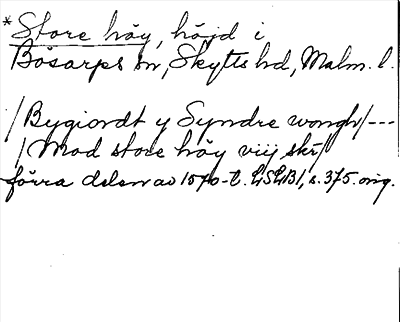 *Store höy, höjd i
Bösarps sn, Skytts hd, Malm. l.
/Bygiordt y Syndre wongh/---
/Mod store höy viij skr/
förra delen av 1570-t. LSLB1, s. 375. orig.